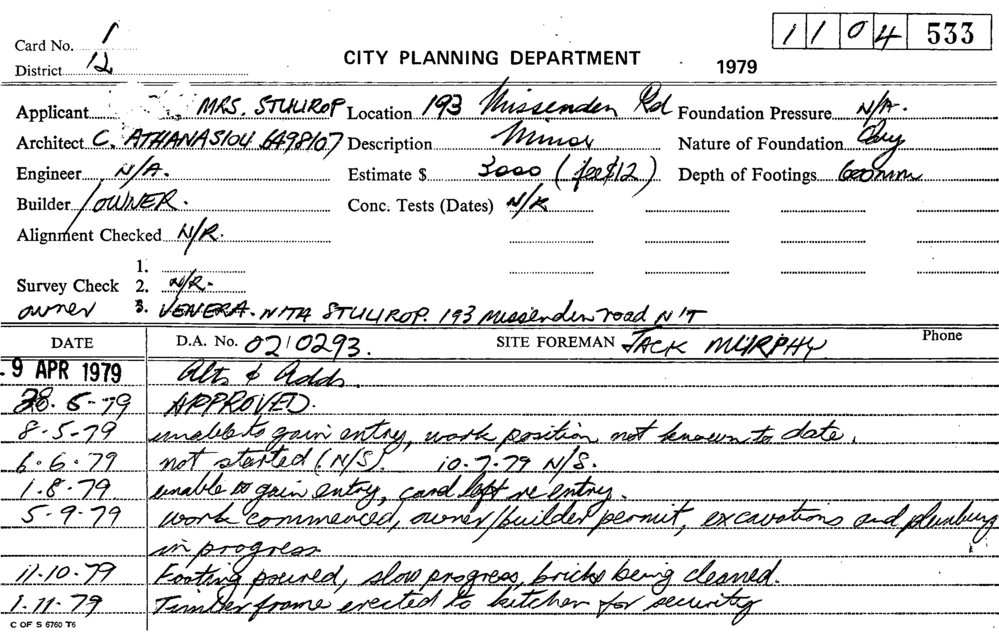 1 1 0 4 533
Card No. 1
CITY PLANNING DEPARTMENT
District 12
1979
Applicant MRS. STULIROP Location 193 Missenden Rd Foundation Pressure N/A.
Architect C. ATHANASIOU 6498107 Description Minor Nature of Foundation Clay
Engineer N/A. Estimate $ 3000 (fee $12) Depth of Footings 600mm
Builder OWNER. Conc. Tests (Dates) N/R
Alignment Checked N/R.
1.
Survey Check 2. N/R.
owner 3. VENERA. NITA STULIROP. 193 Missenden road N'T
DATE D.A. No. 02/0293. SITE FOREMAN JACK MURPHY Phone
9 APR 1979 Alts & Adds.
5-79 APPROVED.
8-5-79 unable to gain entry, work position not known to date.
6.6.79 not started (N/S). 10.7.79 N/S.
1.8.79 unable to gain entry, card left re entry.
5-9-79 work commenced, owner/builder permit, excavations and plumbing
in progress
11.10.79 Footing poured, slow progress, bricks being cleaned.
1.11.79 Timber frame erected to kitchen for security
C OF S 6760 T6